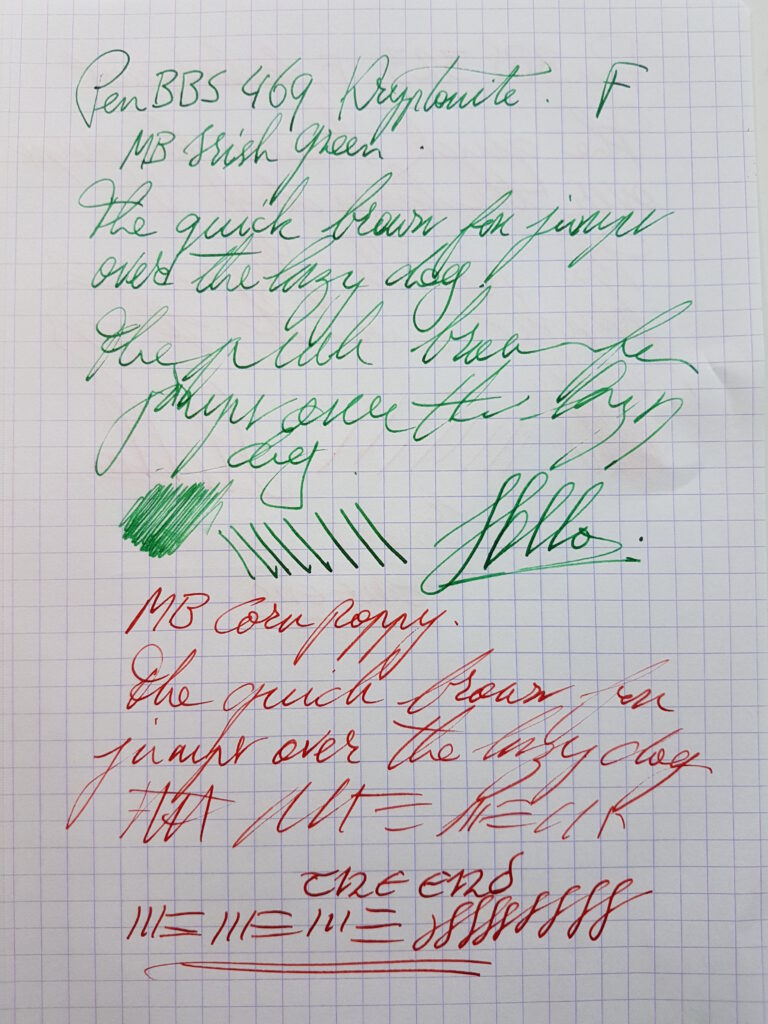 PenBBS 469 Kryptonite. F
MB Irish Green.
The quick brown fox jumps
over the lazy dog.
The quick brown fox
jumps over the lazy
dog
Hello.
MB Corn poppy.
The quick brown fox
jumps over the lazy dog
THE END